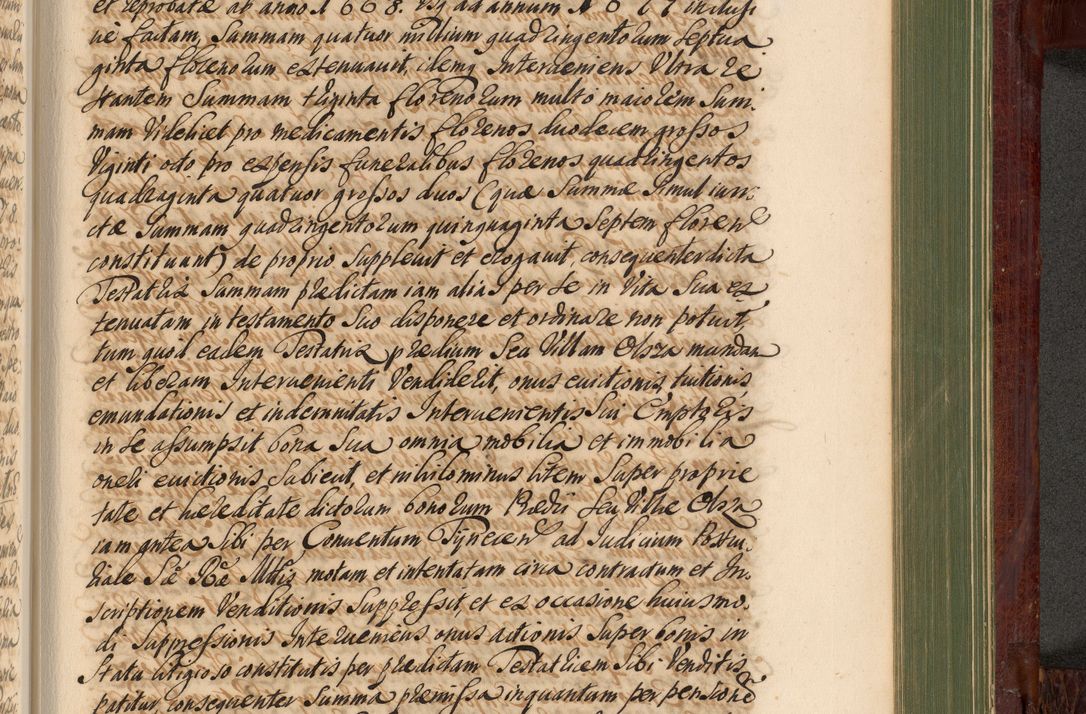 et reprobatæ ab anno 1668. usq ad annum 1677 inclusi
ve factam, Summam quatuor millium quadringentorum septua
ginta florenorum extenuavit, idemq Interveniens Ultra re
stantem Summam triginta florenorum multo maiorem Sum:
mam Videlicet pro medicamentis florenos duodecem grossos
Viginti octo pro expensis funeralibus florenos quadringentos
quadraginta quatuor grossos duos (quæ Summæ Simul iun:
ctæ Summam quadringentorum quinquaginta Septem floren
constituant) de proprio Supplevit et erogavit, consequenter dicta
Testatrix Summam prædictam iam alias per se in Vita Sua ex
tenuatam in testamento Suo disponere et ordinare non potuit,
tum quod eadem Testatrix prædium Seu Villam Olsza mundam
et liberam Intervenienti Vendiderit, onus evictionis tuitionis
emundationis et indemnitatis Intervenientis Sui Emptoris
in se assumpsit bona Sua omnia mobilia et immobilia
oneri evictionis Subiecit, et nihilominus litem Super proprie
tate et hæreditate dictorum bonorum Prædii Seu Villæ Olsza
iam antea Sibi per Conventum Tynecen ad Judicium Postcu:
riale Sæ Ræ Mttis motam et intentatam circa contractum et In
scriptionem Venditionis Suppressit et ex occasione huiusmo:
di Suppressionis Interveniens onus actionis Super bonis in
Statu litigioso constitutis per prædictam Testatricem Sibi Venditis
patitur, consequenter Summa præmissa inquantum per pensione